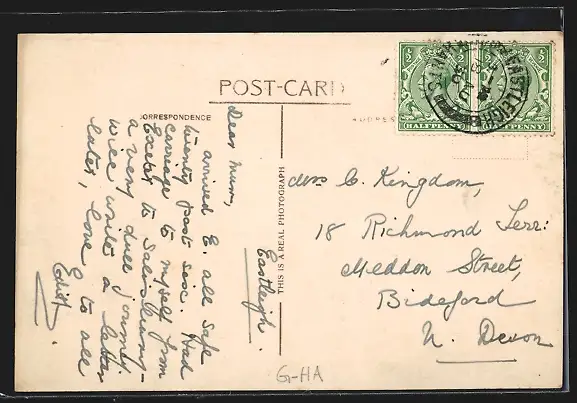 POST-CARD
CORRESPONDENCE
THIS IS A REAL PHOTOGRAPH
HALFPENNY
HALFPENNY
EASTLEIGH
Eastleigh.
Dear Mum,
arrived E. all safe
twenty past six. Had
carriage to myself from
Exeter to Salisbury –
a very dull journey
will write a letter
later, love to all
Edith.
Mrs C. Kingdom,
18 Richmond Terr:
Meddon Street,
Bideford
N. Devon
G-HA